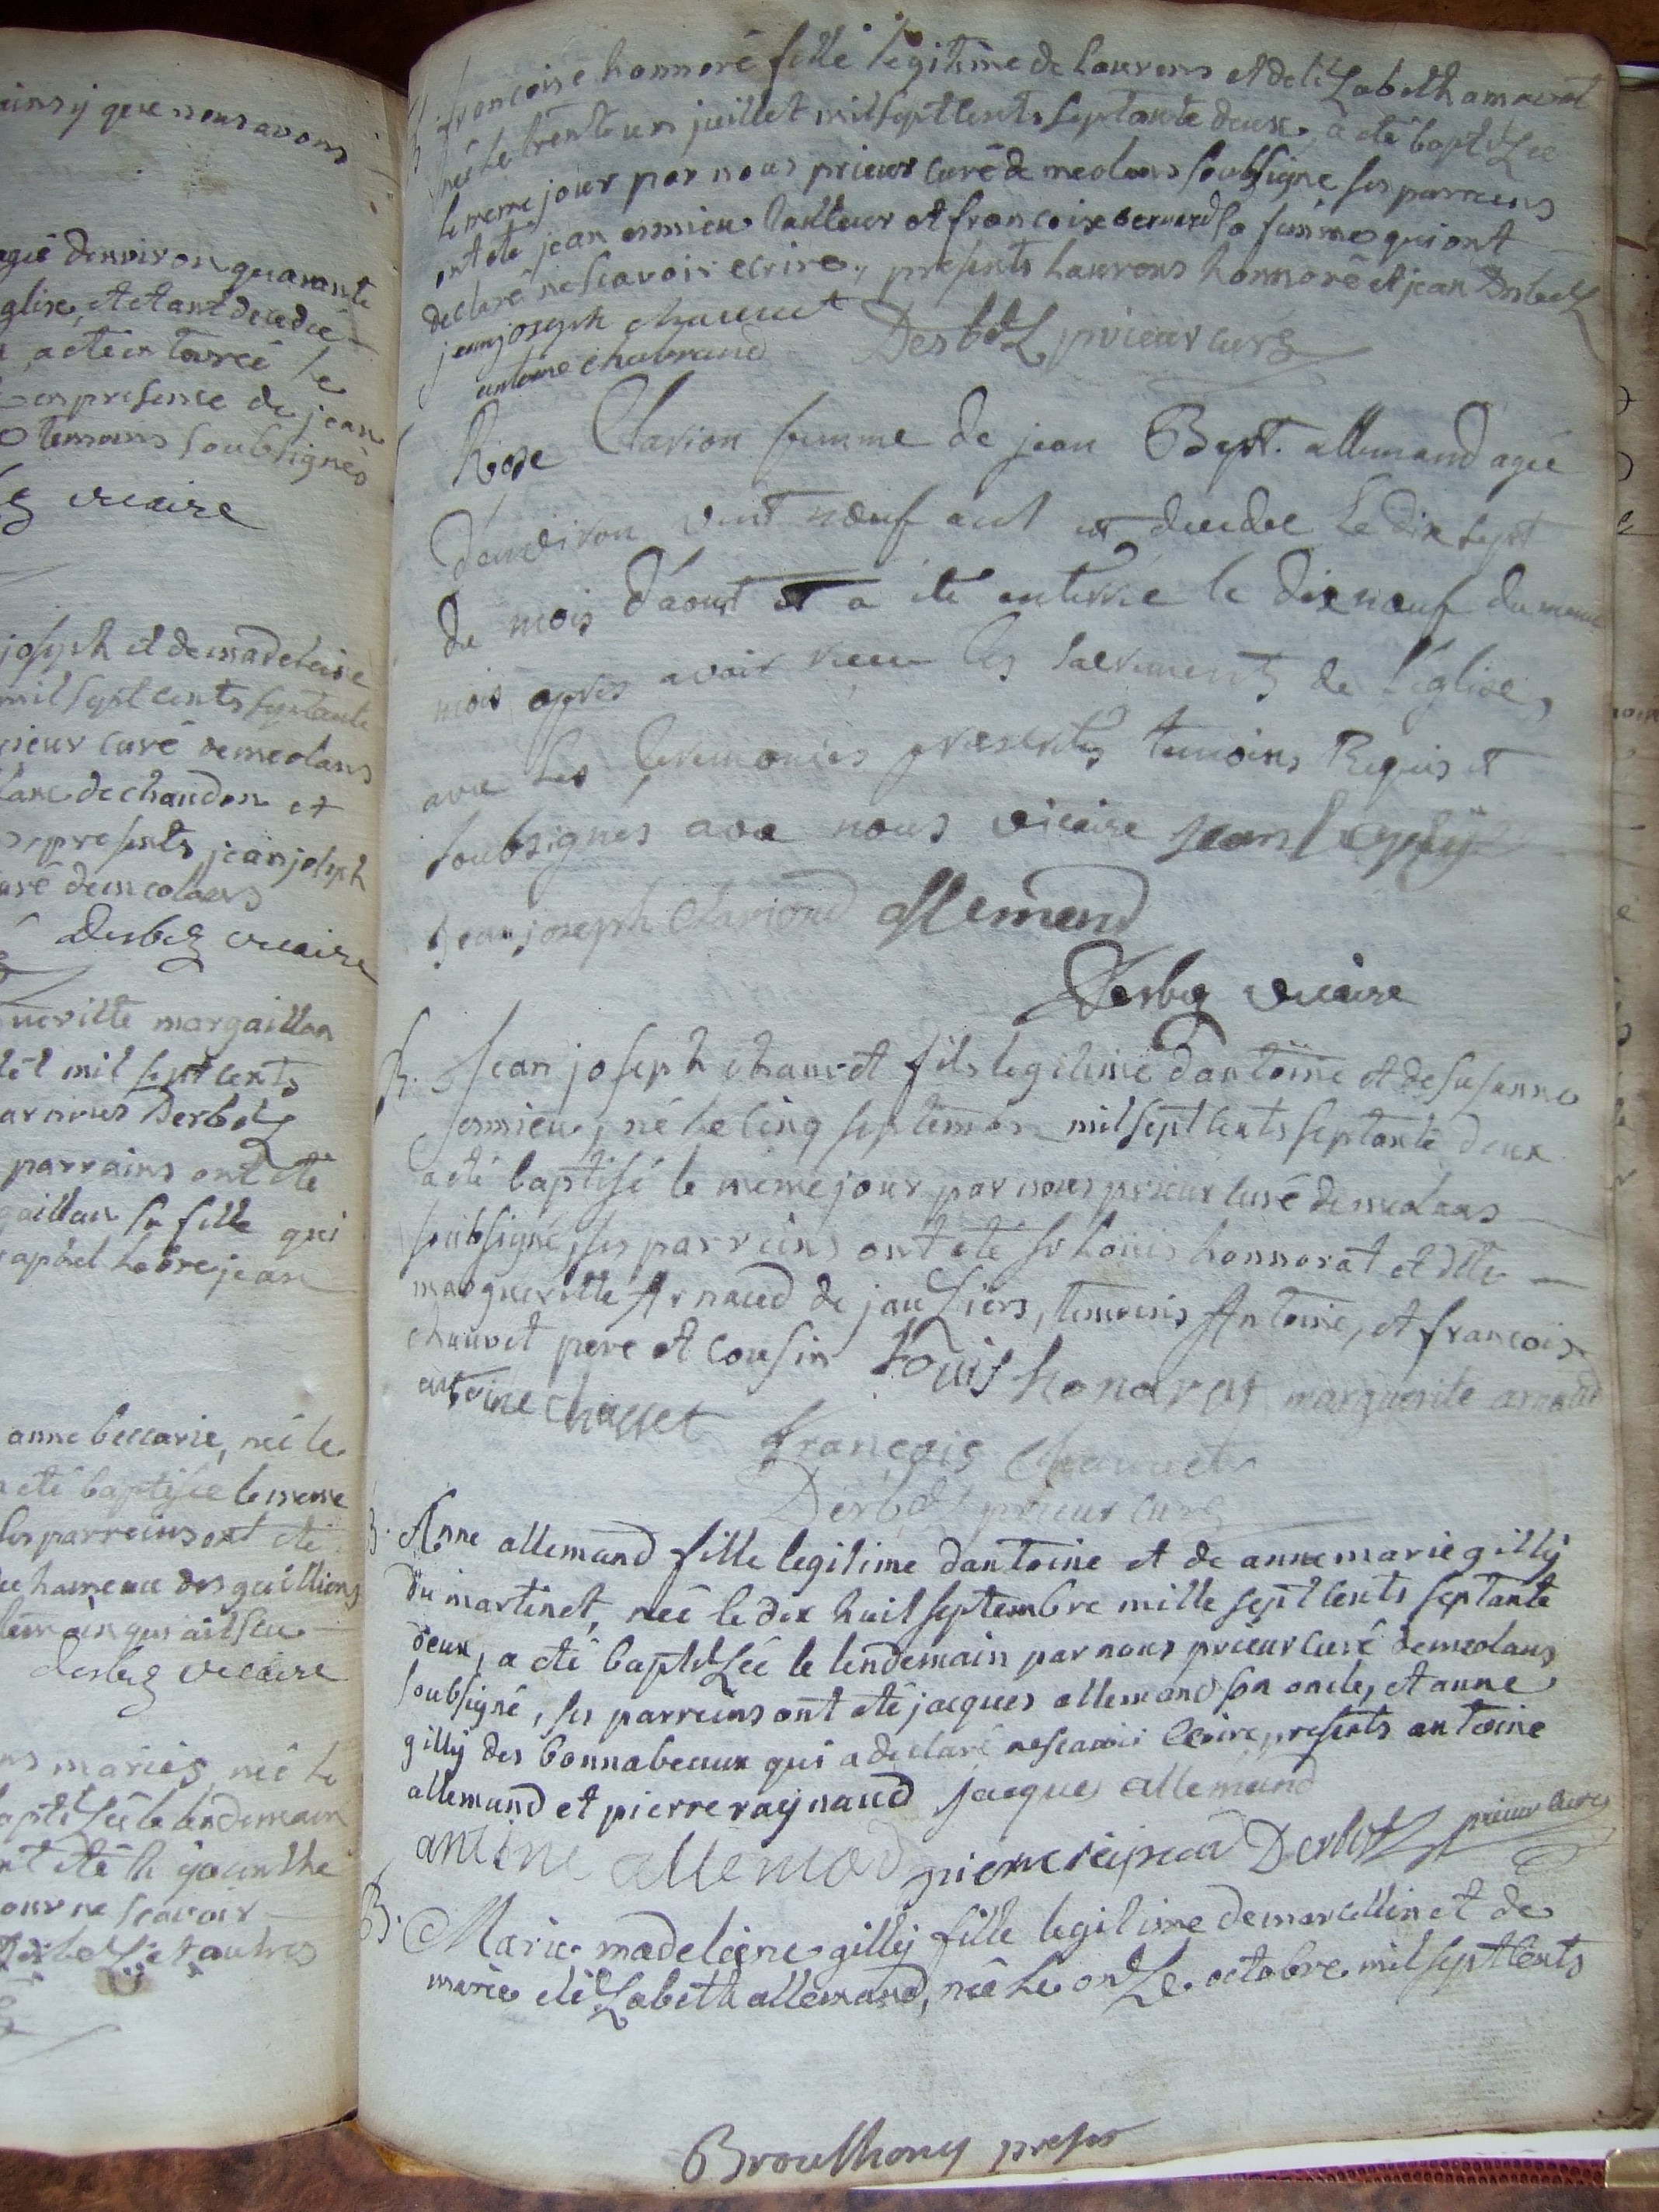 ainsy que nous avons
agé denviron quarante
glise, et etant decedé
a eté enterré le
en presence de jean
temoins soubsignés
vicaire
joseph et de madeleine
mil sept cents septante
prieur curé de meolans
de chandon et
presents jean joseph
curé de meolans
Derbez vicaire
margaillan
mil sept cents
par nous Derbez
parrains ont eté
gaillan sa fille qui
jean
anne beccarie, neé le
a eté baptisée le meme
ses parreins ont eté
du hameau des guillions
Derbez vicaire
neé le
baptiséé le lendemain
ont eté
pour ne scavoir
Derbez et autres
francoise honnoré fille legitime de laurens et delizabeth
neé le trente un juillet mil sept cents septante deux, a eté baptizée
le meme jour par nous prieur curé de meolans soubsigné ses parreins
ont eté jean ermieu tailleur et francoise bernard sa femme qui ont
declaré ne scavoir ecrire, presents laurens honnoré et jean Derbez
jean joseph chauvet
antoine chabrand Derbez prieur curé
Rose Clarion femme de jean Bapt. allemand ageé
d'environ vint nœuf ans est decedée le dix sept
du mois d'aoust et a été enterrée le dix nœuf du meme
mois apres avoir recu les sacrements de l'église,
avec les ceremonies presentes temoins Requis et
soubsignés avec nous vicaire jean
jean joseph Clariond allemend
Derbez vicaire
B. Jean joseph chauvet fils legitime dantoine et de susanne
ermieu, né le cinq septembre mil sept cents septante deux
a eté baptisé le meme jour par nous prieur curé de meolans
soubsigné, ses parreins ont eté sr louis honnorat et dlle
margueritte Arnaud de jauziers, temoins Antoine, et francois
chauvet pere et cousin Louis honorat marguerite arnaud
antoine chauvet francois chauvet
Derbez prieur curé
B. Anne allemand fille legitime dantoine et de anne marie gilly
du martinet, neé le dix huit septembre mille sept cents septante
deux, a eté baptizéé le lendemain par nous prieur curé de meolans
soubsigné, ses parreins ont eté jacques allemand son oncle, et anne
gilly des bonnabeaux qui a declaré ne scavoir ecrire, presents antoine
allemand et pierre raynaud jacques allemand
antoine allemod pierre reinaud Derbez prieur curé
B. Marie madeleine gilly fille legitime de marcellin et de
marie elizabeth allemand, neé le onze octobre mil sept cents